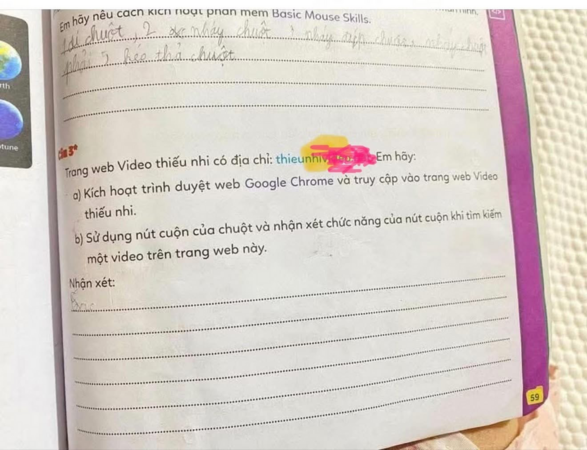 Em hãy nêu cách kích hoạt phần mềm Basic Mouse Skills.
chuột, 2 nháy chuột,
phải 5 kéo thả chuột
rth
ptune
Câu 3*
Trang web Video thiếu nhi có địa chỉ: thieunhiv Em hãy:
a) Kích hoạt trình duyệt web Google Chrome và truy cập vào trang web Video
thiếu nhi.
b) Sử dụng nút cuộn của chuột và nhận xét chức năng của nút cuộn khi tìm kiếm
một video trên trang web này.
Nhận xét:
59